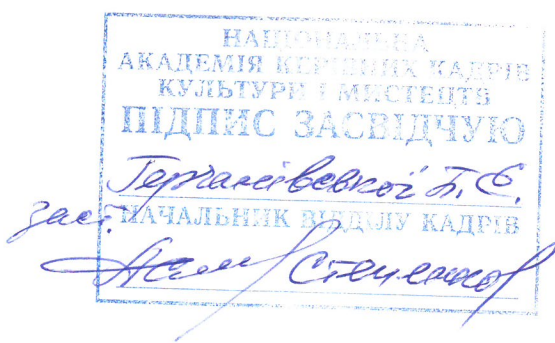 НАЦІОНАЛЬНА
АКАДЕМІЯ КЕРІВНИХ КАДРІВ
КУЛЬТУРИ І МИСТЕЦТВ
ПІДПИС ЗАСВІДЧУЮ
Герчанівської П.Е.
заст.
НАЧАЛЬНИК ВІДДІЛУ КАДРІВ